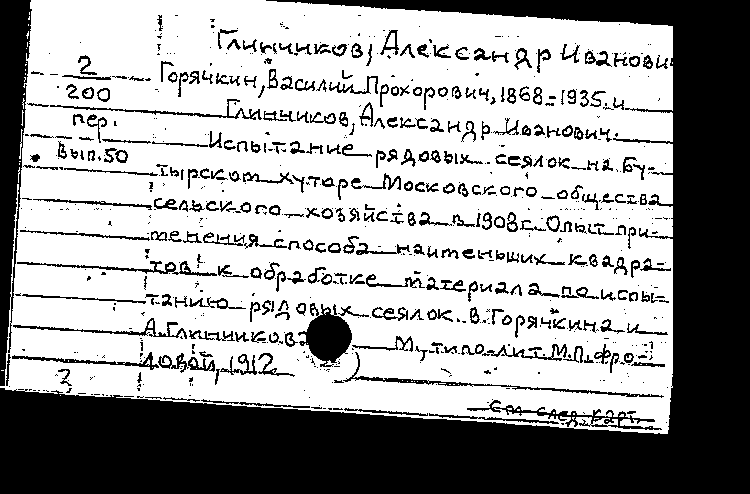 Глинчиков, Александр Иванович
2
200
пер.
Вып.50
Горячкин, Василий Прохорович, 1868-1935. и
Глинчиков, Александр Иванович.
Испытание рядовых сеялок на Бу-
тырском хуторе Московского общества
сельского хозяйства в 1908г. Опыт при-
менения способа наименьших квадра-
тов к обработке материала по испы-
танию рядовых сеялок В.Горячкина и
А.Глинчикова М., типо-лит. М.П.Фро-
ловой, 1912.
3
См след. карт.